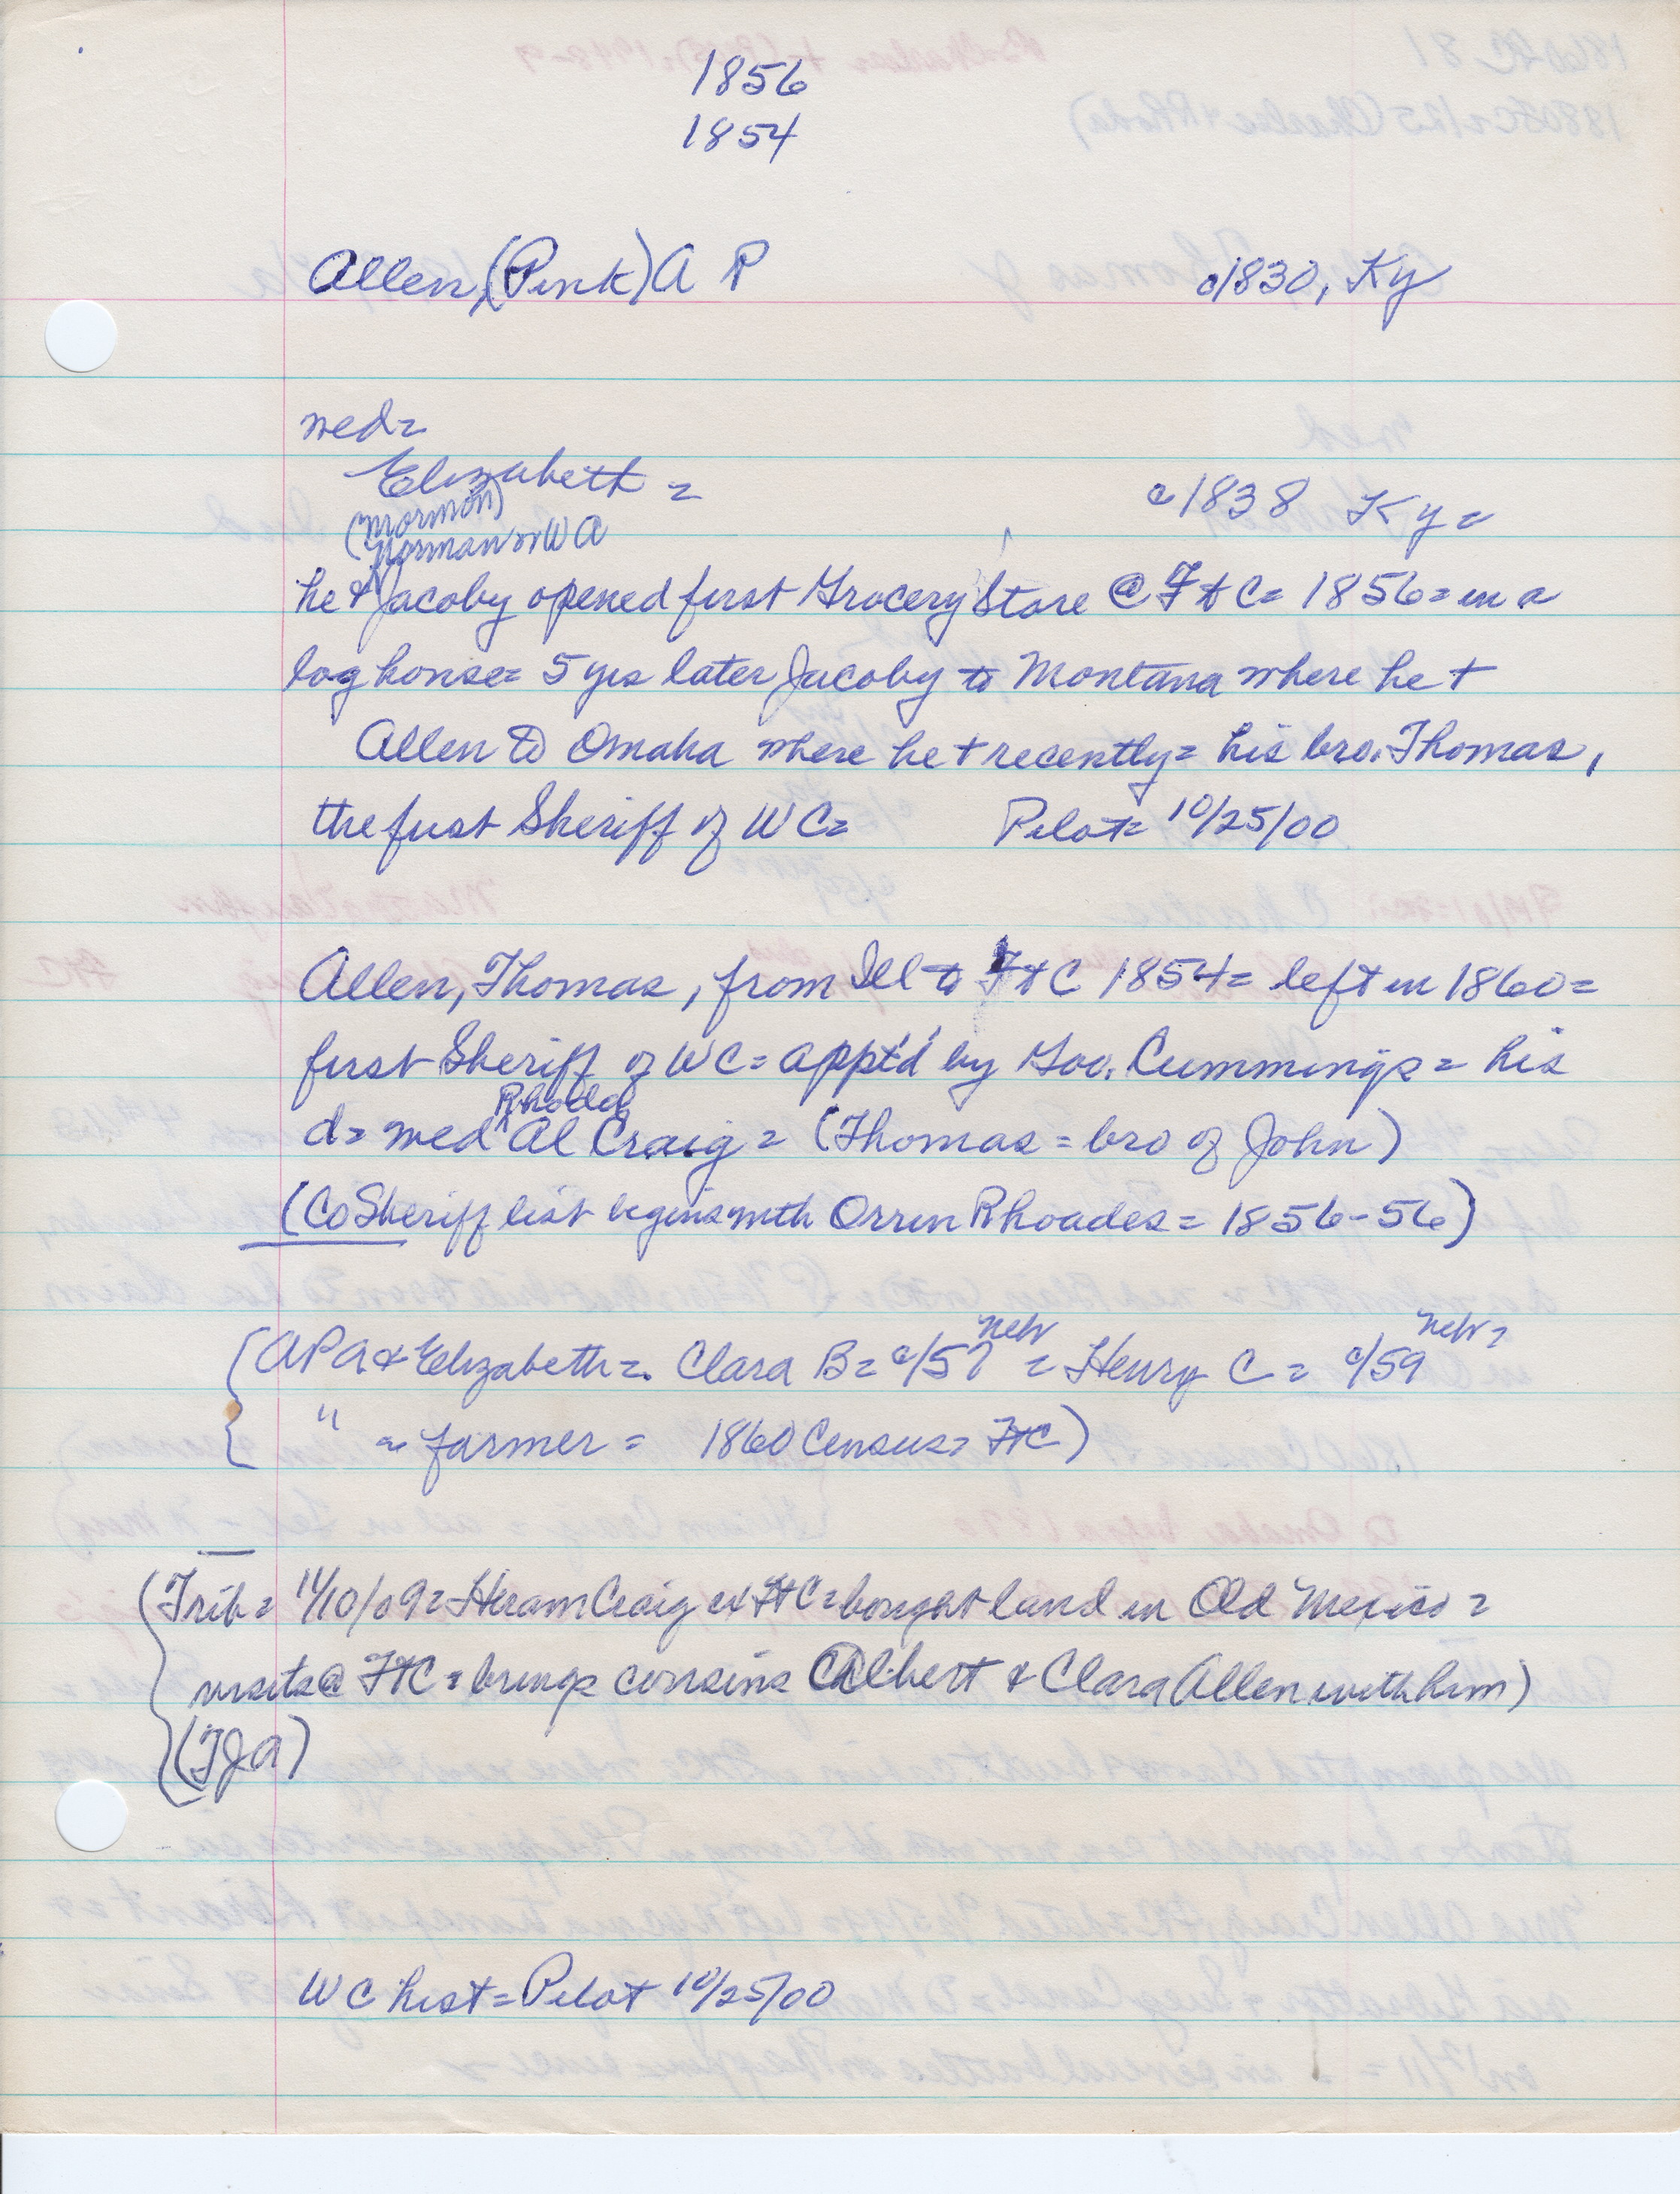 1856
1854
Allen, (Pink) A P c/1830, Ky
med=
Elizabeth = c/1838 Ky=
(Mormon)
Norman or W A
he & Jacoby opened first Grocery Store @ FtC= 1856= in a
log house= 5 yrs later Jacoby to Montana where he +
Allen to Omaha where he + recently= his bro. Thomas,
the first Sheriff of WC= Pilot= 10/25/00
Allen, Thomas, from Ill to FtC 1854= left in 1860=
first Sheriff of WC= appt'd by Gov. Cummings= his
d= med Rhoda Al Craig= (Thomas= bro of John)
(Co Sheriff list begins with Orren Rhoades= 1856-56)
(APA & Elizabeth= Clara B= c/57 neb = Henry C= c/59 neb=
" = farmer= 1860 Census= FtC)
(Trib= 11/10/09= Hiram Craig ex FtC= bought land in Old Mexico=
visits @ FtC= brings cousins Albert & Clara Allen with him)
(TJA)
WC hist= Pilot 10/25/00